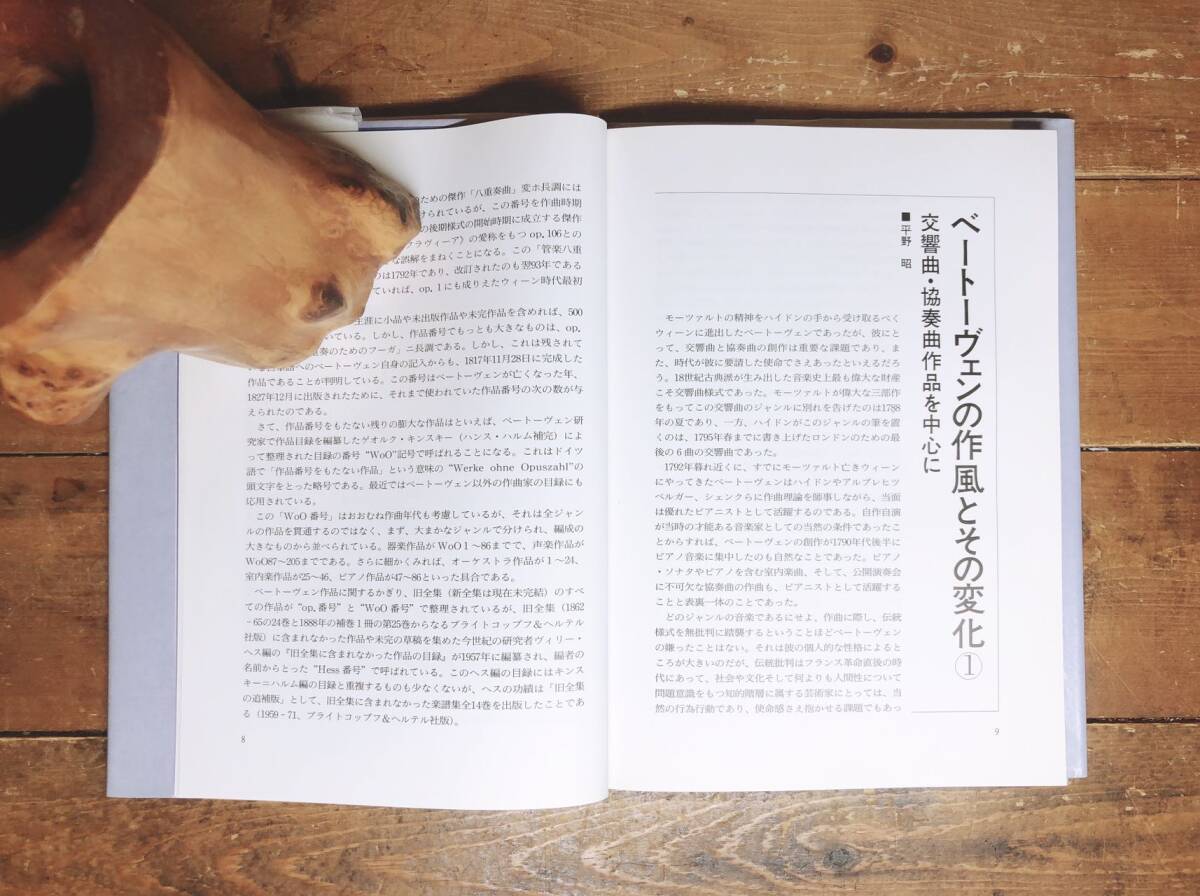 のための傑作「八重奏曲」変ホ長調には
けられているが、この番号を作曲時期
の後期様式の開始時期に成立する傑作
ラヴィーア》の愛称をもつ op. 106との
な誤解をまねくことになる。この「管楽八重
のは1792年であり、改訂されたのも翌93年である
ていれば、op. 1 にも成りえたウィーン時代最初
生涯に小品や未出版作品や未完作品を含めれば、500
いている。しかし、作品番号でもっとも大きなものは、op.
重奏のためのフーガ」ニ長調である。しかし、これは残されて
へのベートーヴェン自身の記入からも、1817年11月28日に完成した
作品であることが判明している。この番号はベートーヴェンが亡くなった年、
1827年12月に出版されたために、それまで使われていた作品番号の次の数が与
えられたのである。
さて、作品番号をもたない残りの膨大な作品はといえば、ベートーヴェン研
究家で作品目録を編纂したゲオルク・キンスキー（ハンス・ハルム補完）によ
って整理された目録の番号“WoO”記号で呼ばれることになる。これはドイツ
語で「作品番号をもたない作品」という意味の“Werke ohne Opuszahl”の
頭文字をとった略号である。最近ではベートーヴェン以外の作曲家の目録にも
応用されている。
この「WoO 番号」はおおむね作曲年代も考慮しているが、それは全ジャン
ルの作品を貫通するのではなく、まず、大まかなジャンルで分けられ、編成の
大きなものから並べられている。器楽作品がWoO 1〜86までで、声楽作品が
WoO87〜205までである。さらに細かくみれば、オーケストラ作品が 1〜24、
室内楽作品が25〜46、ピアノ作品が47〜86といった具合である。
ベートーヴェン作品に関するかぎり、旧全集（新全集は現在未完結）のすべ
ての作品が“op. 番号”と“WoO 番号”で整理されているが、旧全集（1862
-65の24巻と1888年の補巻 1 冊の第25巻からなるブライトコップフ＆ヘルテル
社版）に含まれなかった作品や未完の草稿を集めた今世紀の研究者ヴィリー・
ヘス編の『旧全集に含まれなかった作品の目録』が1957年に編纂され、編者の
名前からとった“Hess 番号”で呼ばれている。このヘス編の目録にはキンス
キーニハルム編の目録と重複するものも少なくないが、ヘスの功績は「旧全集
の追補版」として、旧全集に含まれなかった楽譜集全14巻を出版したことであ
る（1959-71、ブライトコップフ＆ヘルテル社版）。
8
ベートーヴェンの作風とその変化①
交響曲・協奏曲作品を中心に
■平野 昭
モーツァルトの精神をハイドンの手から受け取るべく
ウィーンに進出したベートーヴェンであったが、彼にと
って、交響曲と協奏曲の創作は重要な課題であり、ま
た、時代が彼に要請した使命でさえあったといえるだろ
う。18世紀古典派が生み出した音楽史上最も偉大な財産
こそ交響曲様式であった。モーツァルトが偉大な三部作
をもってこの交響曲のジャンルに別れを告げたのは1788
年の夏であり、一方、ハイドンがこのジャンルの筆を置
くのは、1795年春までに書き上げたロンドンのための最
後の 6 曲の交響曲であった。
1792年暮れ近くに、すでにモーツァルト亡きウィーン
にやってきたベートーヴェンはハイドンやアルブレヒツ
ベルガー、シェンクらに作曲理論を師事しながら、当面
は優れたピアニストとして活躍するのである。自作自演
が当時の才能ある音楽家としての当然の条件であったこ
とからすれば、ベートーヴェンの創作が1790年代後半に
ピアノ音楽に集中したのも自然なことであった。ピアノ
・ソナタやピアノを含む室内楽曲、そして、公開演奏会
に不可欠な協奏曲の作曲も、ピアニストとして活躍する
ことと表裏一体のことであった。
どのジャンルの音楽であるにせよ、作曲に際し、伝統
様式を無批判に踏襲するということほどベートーヴェン
の嫌ったことはない。それは彼の個人的な性格によると
ころが大きいのだが、伝統批判はフランス革命直後の時
代にあって、社会や文化そして何よりも人間性について
問題意識をもつ知的階層に属する芸術家にとっては、当
然の行為行動であり、使命感さえ抱かせる課題でもあっ
9